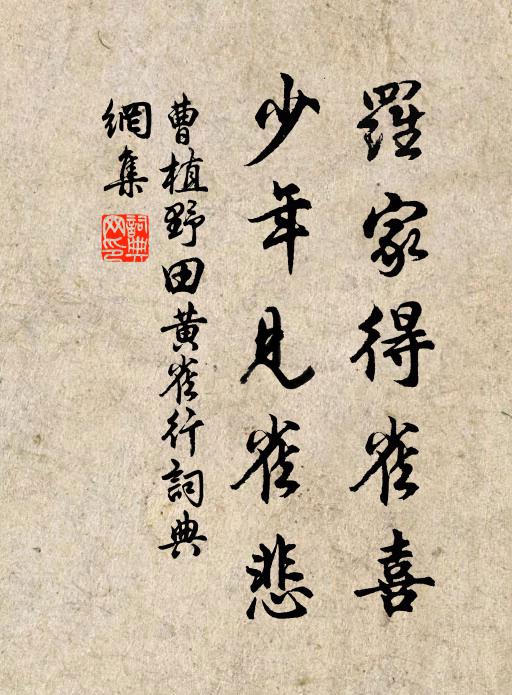 羅家得雀喜
少年見雀悲
曹植野田黃雀行詞典
網集
詞典
网印